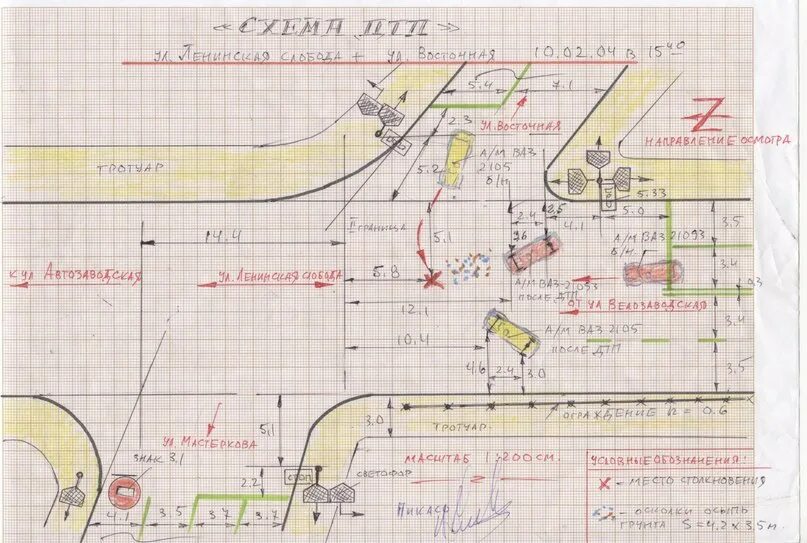 « СХЕМА ДТП »
ул. Ленинская слобода + ул. Восточная 10.02.04 в 15 40
5.4
7.1
2.3
ул. Восточная
Z
НАПРАВЛЕНИЕ ОСМОТРА
ТРОТУАР
5.2
А/М ВАЗ
2105
Б/Н
5.33
2.4
2.5
4.1
5.0
II граница
14.4
5.1
96
А/М ВАЗ 21093
Б/Н.
3.5
3.4
К УЛ АВТОЗАВОДСКАЯ
УЛ. ЛЕНИНСКАЯ СЛОБОДА
6.8
А/М ВАЗ-21093
ПОСЛЕ ДТП
0.3
ОТ УЛ ВЕЛОЗАВОДСКАЯ
12.1
10.4
А/М ВАЗ 2105
ПОСЛЕ ДТП
3.4
4.6
2.4
3.0
3.5
5.1
3.0
ТРОТУАР.
ОГРАЖДЕНИЕ h = 0.6
УЛ. МАСТЕРКОВА
ЗНАК 3.1
2.2
СТОП
СВЕТОФОР
МАСШТАБ 1:200 СМ.
УСЛОВНЫЕ ОБОЗНАЧЕНИЯ:
- МЕСТО СТОЛКНОВЕНИЯ
- ОСКОЛКИ ОСЫПЬ
ГРУНТА S = 4,2 х 3,5 м.
4.1
3.5
3.7
3.7
Пикасо